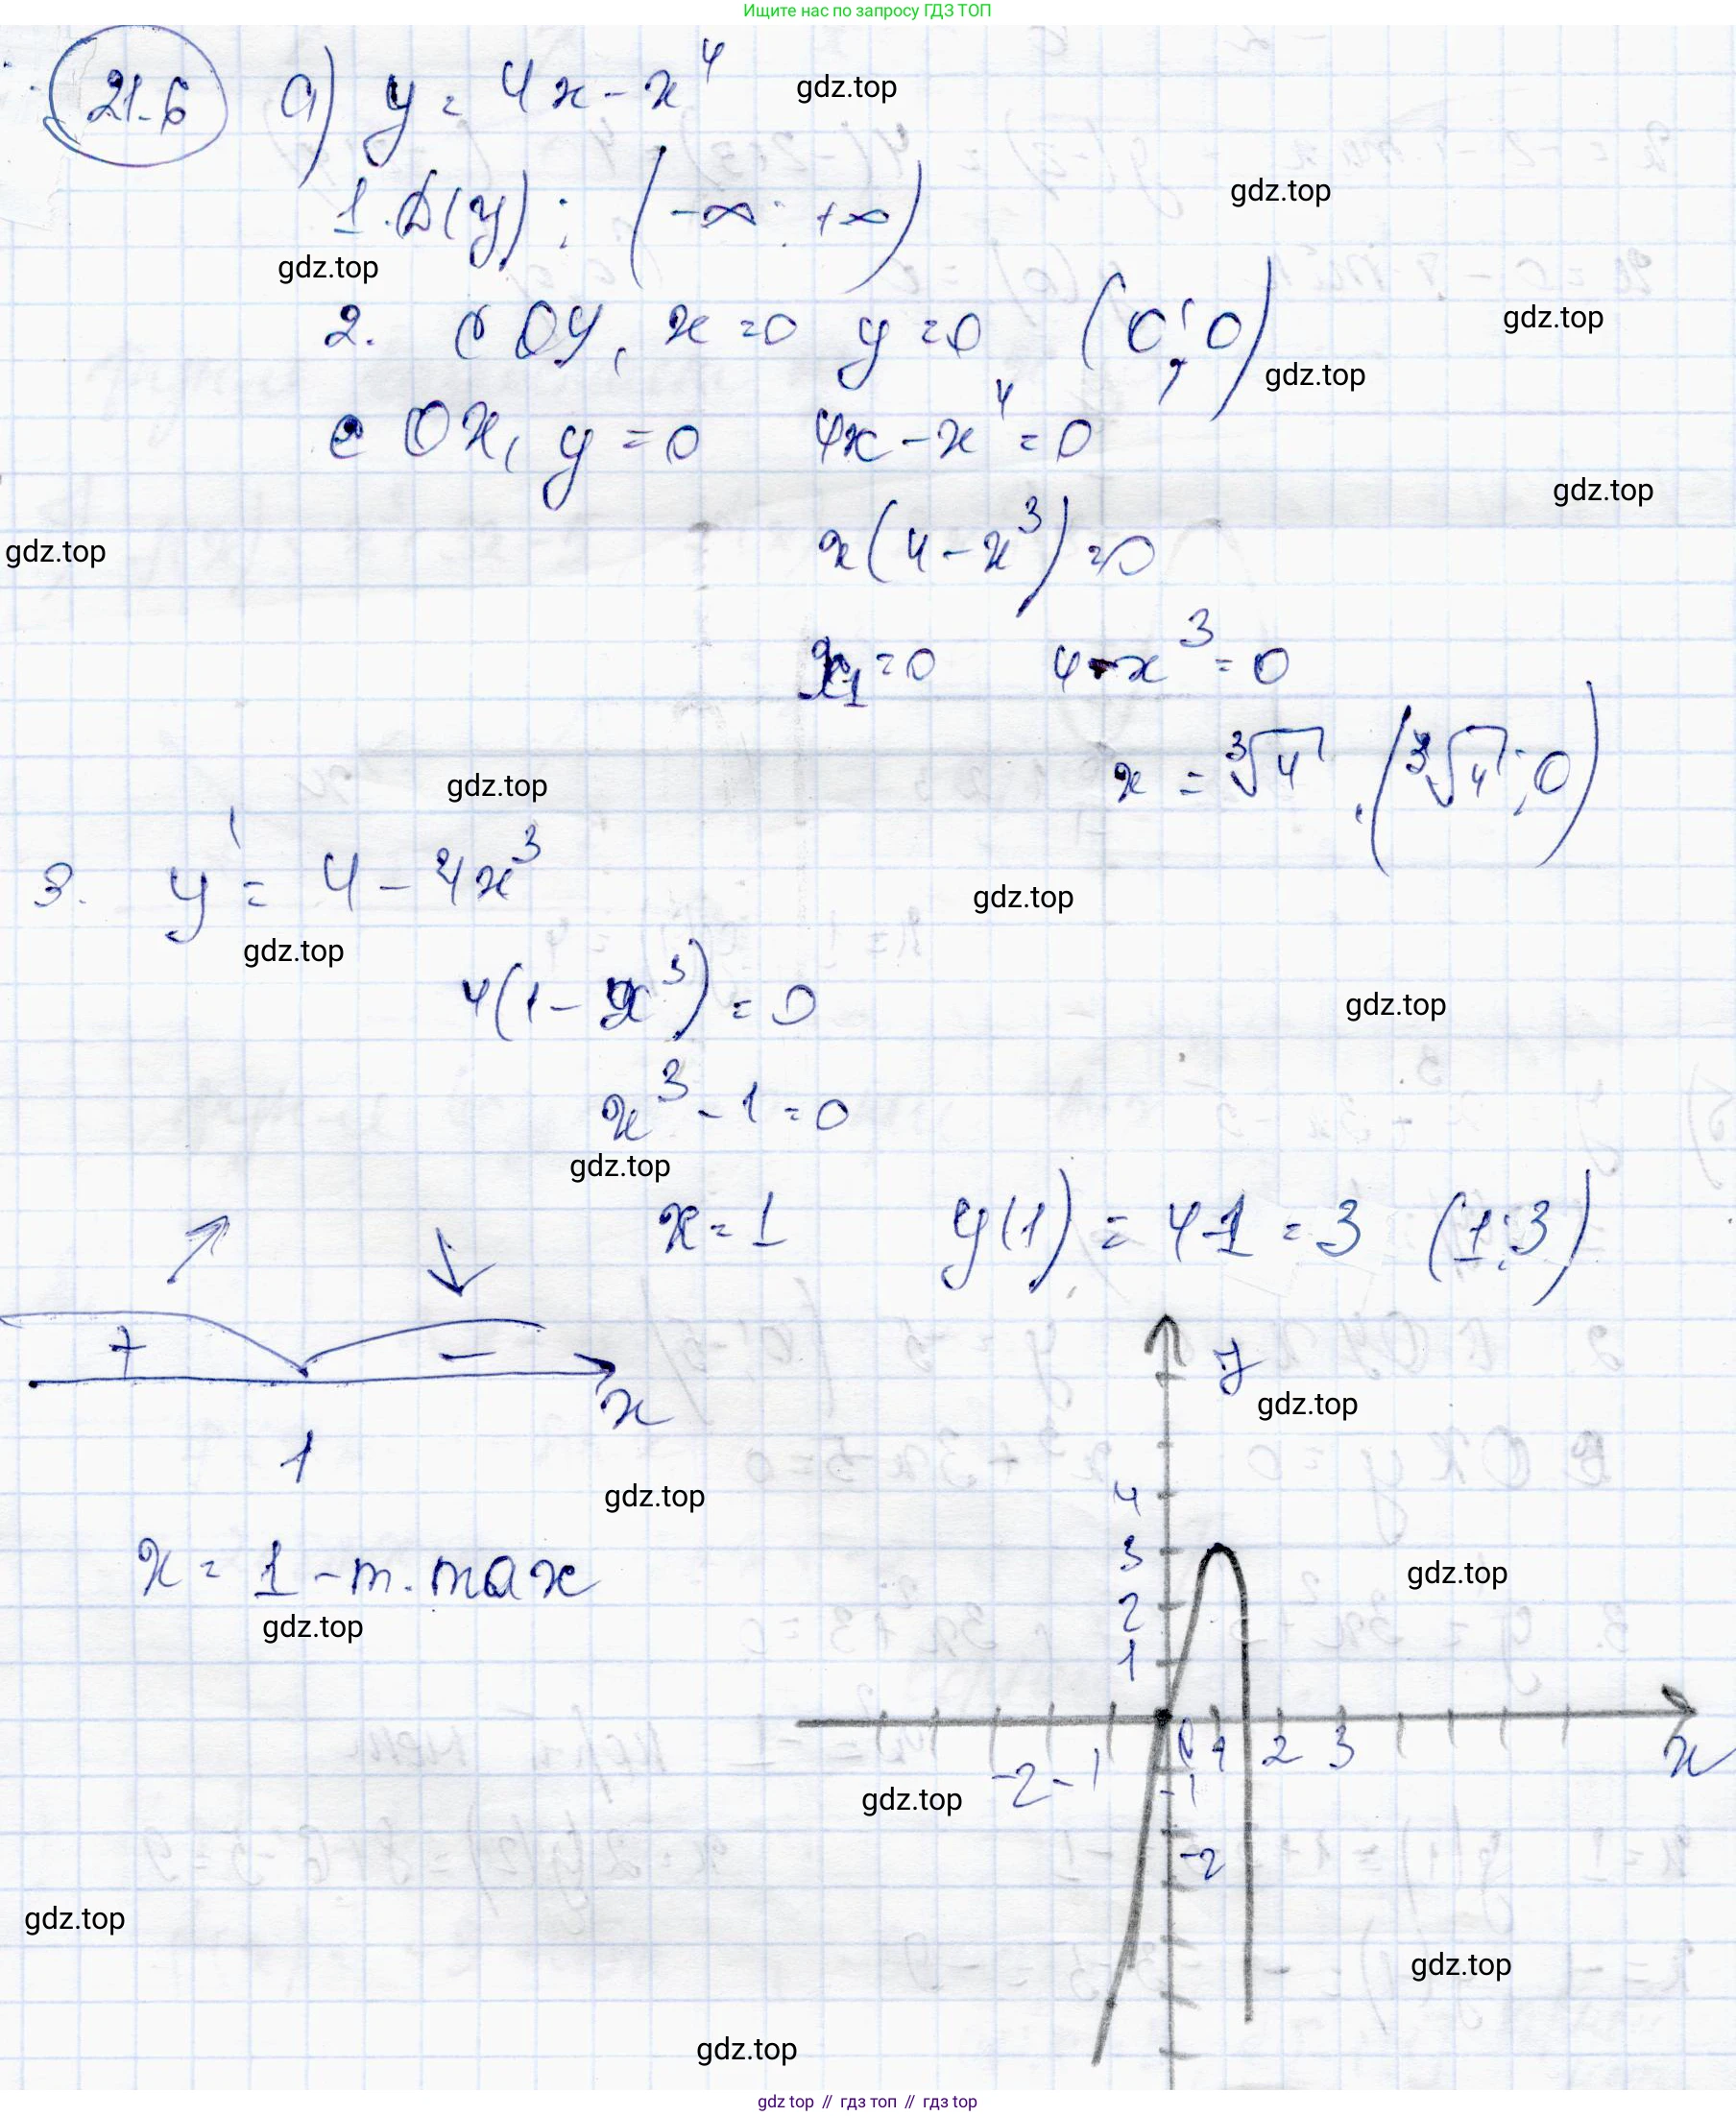 Ищите нас по запросу ГДЗ ТОП
21.6 а) y = 4x - x⁴
gdz.top
1. D(y): (-∞; +∞)
gdz.top
gdz.top
2. с OY, x = 0 y = 0 (0; 0)
gdz.top
gdz.top
с OX, y = 0 4x - x⁴ = 0
gdz.top
x(4 - x³) = 0
gdz.top
x₁ = 0 4 - x³ = 0
x = ∛4, (∛4; 0)
gdz.top
3. y' = 4 - 4x³
gdz.top
gdz.top
4(1 - x³) = 0
gdz.top
x³ - 1 = 0
gdz.top
x = 1 y(1) = 4-1 = 3 (1; 3)
+ - x
1
y
gdz.top
gdz.top
x = 1 - т. max
gdz.top
gdz.top
4
3
2
1
-2 -1 0 1 2 3 x
-1
-2
gdz.top
gdz.top
gdz.top
gdz.top
gdz top // гдз топ // гдз top